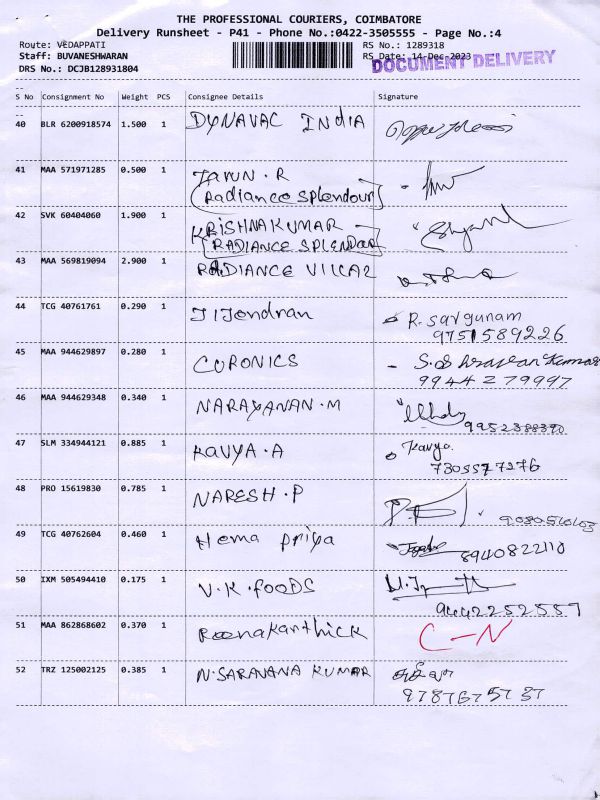 THE PROFESSIONAL COURIERS, COIMBATORE
Delivery Runsheet - P41 - Phone No.:0422-3505555 - Page No.:4
Route: VEDAPPATI RS No.: 1289318
Staff: BUVANESHWARAN RS Date: 14-Dec-2023
DRS No.: DCJB128931804 DOCUMENT DELIVERY
S No Consignment No Weight PCS Consignee Details Signature
40 BLR 6200918574 1.500 1 DYNAVAC INDIA
41 MAA 571971285 0.500 1 TARUN.R
(Radiance Splendour)
42 SVK 60404060 1.900 1 KRISHNAKUMAR
(RADIANCE SPLENDAR)
43 MAA 569819094 2.900 1 RADIANCE VILLAZ
44 TCG 40761761 0.290 1 JIJendran R. sargunam
9751589226
45 MAA 944629897 0.280 1 CURONICS
9944279997
46 MAA 944629348 0.340 1 NARAYANAN.M
47 SLM 334944121 0.885 1 KAVYA.A Kavya.
7305577276
48 PRO 15619830 0.785 1 NARESH.P
49 TCG 40762604 0.460 1 Hema Priya 8940822110
50 IXM 505494410 0.175 1 V.K.FOODS
9442252557
51 MAA 862868602 0.370 1 C-N
52 TRZ 125002125 0.385 1 N.SARAVANA KUMAR